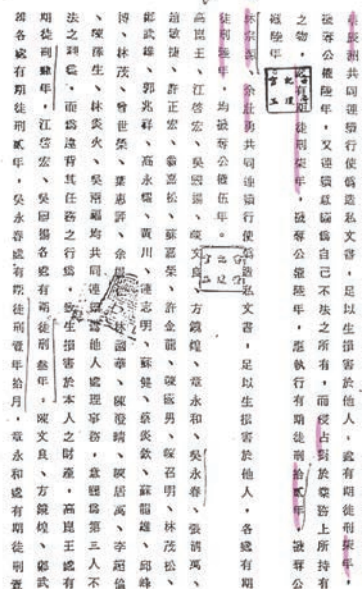 共同連續行使偽造私文書,足以生損害於他人,處有期徒刑柒年,
褫奪公權陸年,又連續意圖為自己不法之所有,而侵占對於業務上所持有
之物,處有期徒刑柒年,褫奪公權陸年,應執行有期徒刑拾貳年,褫奪公
權陸年。
共同連續行使偽造私文書,足以生損害於他人,各處有期
徒刑陸年,均褫奪公權伍年。
高崑王、江啓宏、吳國揚、陳文良、方鏡煌、章永和、吳永春、張清萬、
趙敏捷、許正宏、翁嘉松、蘇嘉榮、許金龍、陳國男、陳召明、林茂松、
鄭武雄、郭兆祥、高永耀、黃川、陳志明、蘇健、蔡炎欽、蘇龍雄、邱峰
博、林茂、曾世榮、葉惠評、余 、林國華、陳澄晴、陳居萬、李超倫
、陳孫生、林炎火、吳兩福均共同連續為他人處理事務,意圖為第三人不
法之利益,而為違背其任務之行為,致生損害於本人之財產,高崑王處有
期徒刑肆年,江啓宏、吳國揚各處有期徒刑叁年。陳文良、方鏡煌、鄭武
雄各處有期徒刑貳年,吳永春處有期徒刑壹年拾月,章永和處有期徒刑壹